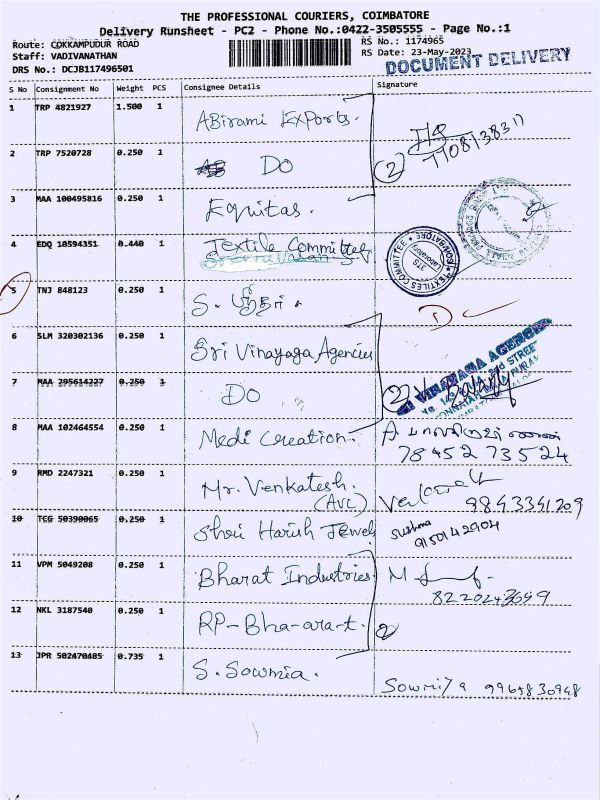 THE PROFESSIONAL COURIERS, COIMBATORE
Delivery Runsheet - PC2 - Phone No.:0422-3505555 - Page No.:1
Route: COKKAMPUDUR ROAD RS No.: 1174965
Staff: VADIVANATHAN RS Date: 23-May-2023
DRS No.: DCJB117496501 DOCUMENT DELIVERY
S No Consignment No Weight PCS Consignee Details Signature
1 TRP 4821927 1.500 1 ABirami Exports.
2 TRP 7520728 0.250 1 DO 2
3 MAA 100495816 0.250 1 Equitas.
4 EDQ 10594351 0.440 1 Textile Committee
TEXTILES COMMITTEE
5 TNJ 848123 0.250 1 S.
6 SLM 320302136 0.250 1 Sri Vinayaga Agencies
VINAYAGA AGENCIES
7 MAA 295614227 0.250 1 DO 2
8 MAA 102464554 0.250 1 Medi Creation.
78452 73524
9 RMD 2247321 0.250 1 Mr. Venkatesh.
(AVC) 9843341209
10 TCG 50390065 0.250 1 Shri Harish Jewels Sushma
9150142904
11 VPM 5049208 0.250 1 Bharat Industries M
12 NKL 3187540 0.250 1 RP-Bha-ara-t. 2
13 JPR 502470485 0.735 1 S. Sowmia.